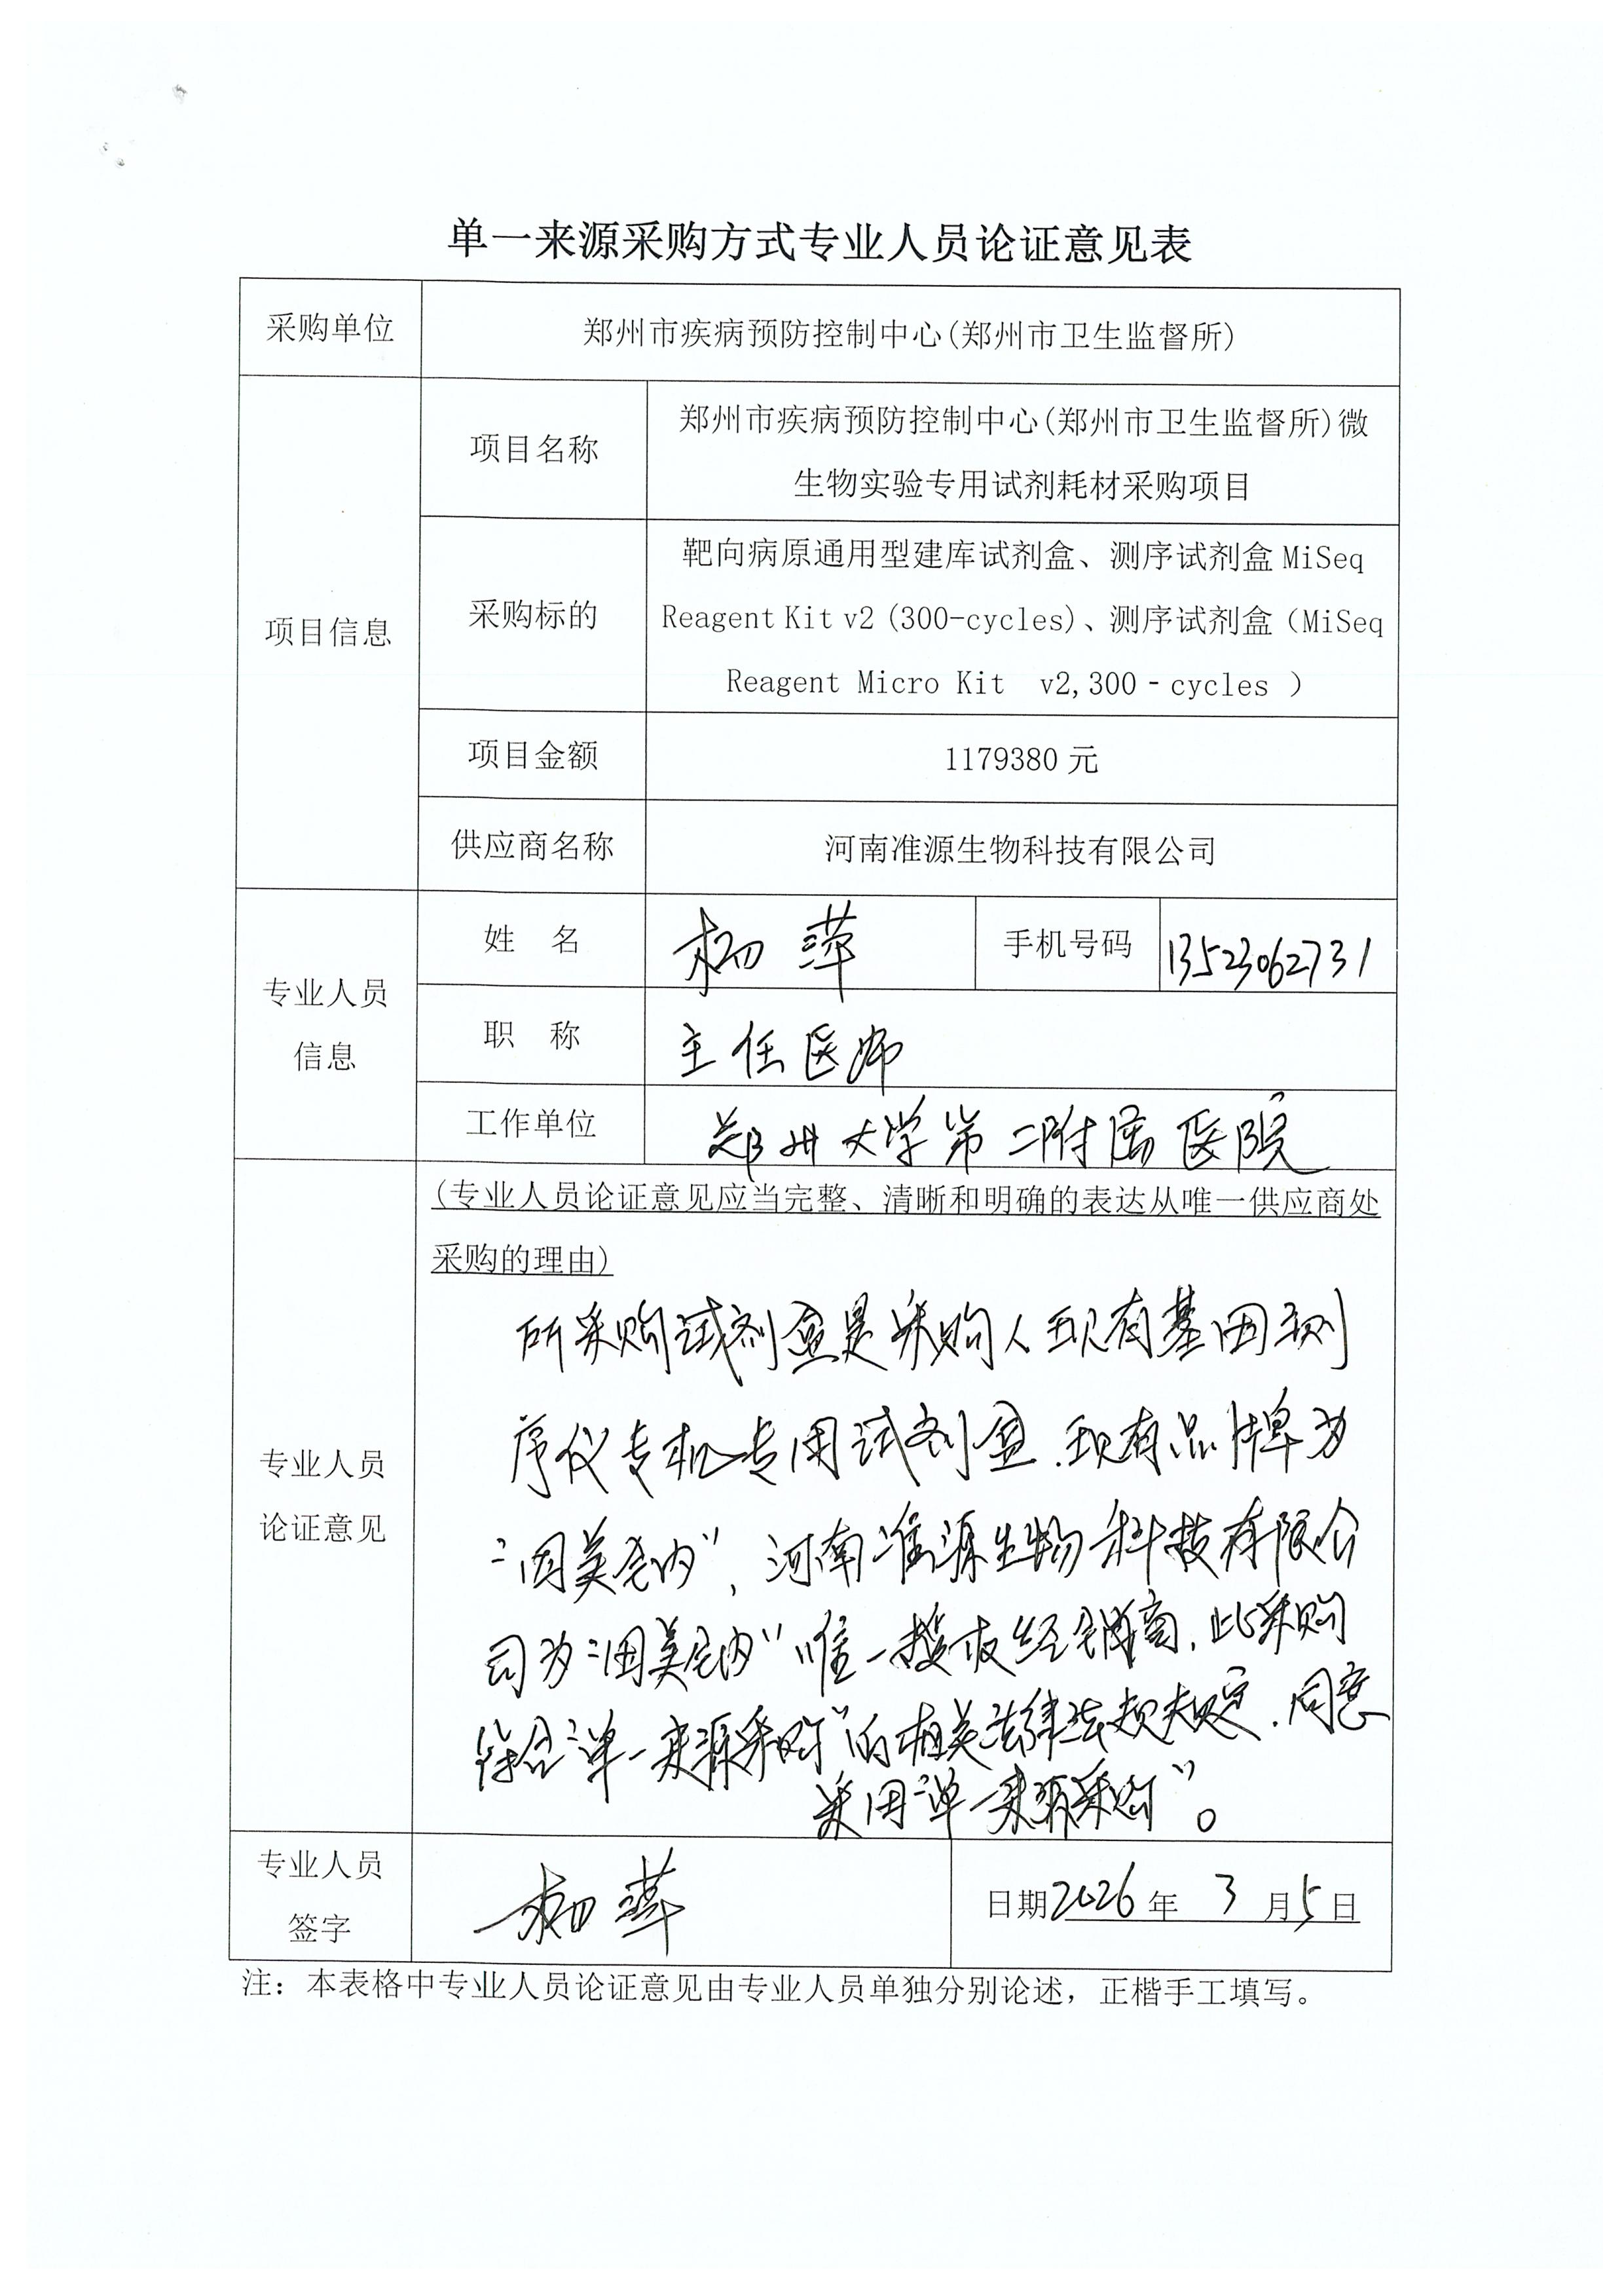 单一来源采购方式专业人员论证意见表
采购单位
郑州市疾病预防控制中心(郑州市卫生监督所)
项目信息
项目名称
郑州市疾病预防控制中心(郑州市卫生监督所)微
生物实验专用试剂耗材采购项目
采购标的
靶向病原通用型建库试剂盒、测序试剂盒 MiSeq
Reagent Kit v2 (300-cycles)、测序试剂盒（MiSeq
Reagent Micro Kit v2,300‐cycles ）
项目金额
1179380 元
供应商名称
河南准源生物科技有限公司
专业人员
信息
姓 名
杨萍
手机号码
13523062731
职 称
主任医师
工作单位
郑州大学第二附属医院
专业人员
论证意见
(专业人员论证意见应当完整、清晰和明确的表达从唯一供应商处
采购的理由)
所采购试剂盒是采购人现有基因测
序仪专机专用试剂盒.现有品牌为
“因美纳”，河南准源生物科技有限公
司为“因美纳”唯一授权经销商，此采购
符合“单一来源采购”的相关法律法规规定.同意
采用“单一来源采购”。
专业人员
签字
杨萍
日期2026年 3月5日
注：本表格中专业人员论证意见由专业人员单独分别论述，正楷手工填写。